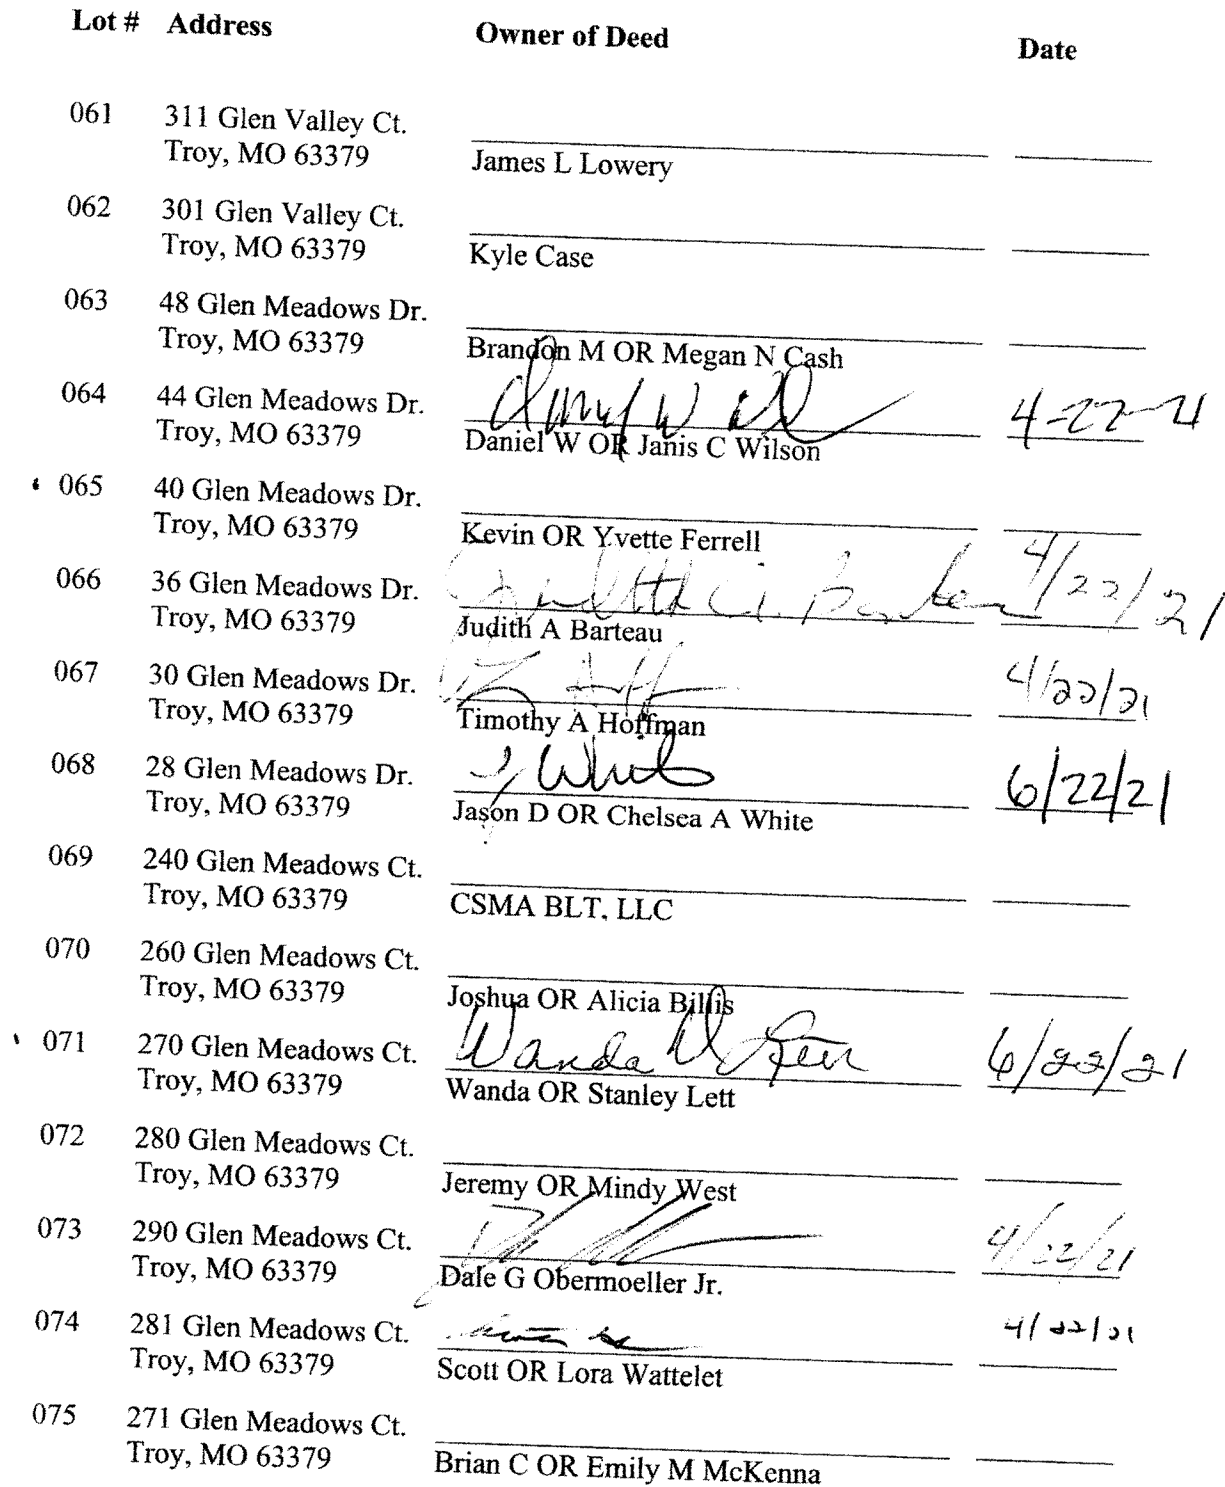 Lot # Address Owner of Deed Date
061 311 Glen Valley Ct.
Troy, MO 63379 James L Lowery
062 301 Glen Valley Ct.
Troy, MO 63379 Kyle Case
063 48 Glen Meadows Dr.
Troy, MO 63379 Brandon M OR Megan N Cash
064 44 Glen Meadows Dr. 4-22-21
Troy, MO 63379 Daniel W OR Janis C Wilson
065 40 Glen Meadows Dr.
Troy, MO 63379 Kevin OR Yvette Ferrell
066 36 Glen Meadows Dr. Judith A. Barteau 4/22/21
Troy, MO 63379 Judith A Barteau
067 30 Glen Meadows Dr. 4/22/21
Troy, MO 63379 Timothy A Hoffman
068 28 Glen Meadows Dr. J White 6/22/21
Troy, MO 63379 Jason D OR Chelsea A White
069 240 Glen Meadows Ct.
Troy, MO 63379 CSMA BLT, LLC
070 260 Glen Meadows Ct.
Troy, MO 63379 Joshua OR Alicia Billis
071 270 Glen Meadows Ct. Wanda Lett 6/22/21
Troy, MO 63379 Wanda OR Stanley Lett
072 280 Glen Meadows Ct.
Troy, MO 63379 Jeremy OR Mindy West
073 290 Glen Meadows Ct. 4/22/21
Troy, MO 63379 Dale G Obermoeller Jr.
074 281 Glen Meadows Ct. 4/22/21
Troy, MO 63379 Scott OR Lora Wattelet
075 271 Glen Meadows Ct.
Troy, MO 63379 Brian C OR Emily M McKenna